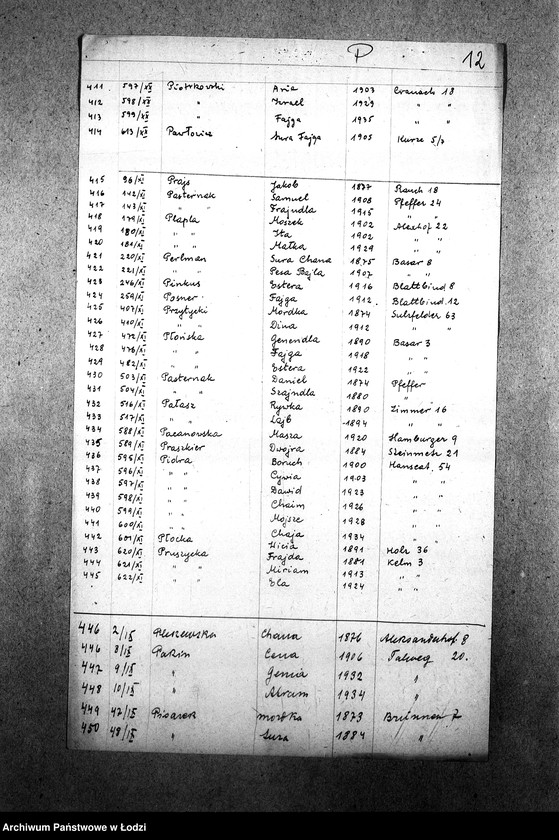 P 12
411 597/XII Piotrkowski Aria 1903 Cranach 18
412 598/XII " Izrael 1929 " "
413 599/XII " Fajga 1935 " "
414 613/XII Pawłowicz Sura Fajga 1905 Kurze 5/7
415 96/XI Prajs Jakob 1877 Rauch 18
416 142/XI Pasternak Samuel 1908 Pfeffer 24
417 143/XI " " Frajndla 1915 " "
418 179/XI Płapla Moszek 1902 Alexhof 22
419 180/XI " " Ita 1902 " "
420 181/XI " " Małka 1929 " "
421 220/XI Perlman Sura Chana 1875 Basar 8
422 221/XI " " Pesa Bajla 1907 " "
423 246/XI Pinkus Estera 1916 Blattbind. 8
424 259/XI Posner Fajga 1912 Blattbind. 12
425 407/XI Przytycki Mordka 1874 Sulzfelder 63
426 410/XI " " Dina 1912 " "
427 472/XI Płońska Genendla 1890 Basar 3
428 478/XI " " Fajga 1918 " "
429 482/XI Estera 1922 " "
430 503/XI Pasternak Daniel 1874 Pfeffer
431 504/XI " " Szajndla 1880 "
432 516/XI Pałasz Rywka 1890 Zimmer 16
433 517/XI " " Lajb 1894 " "
434 588/XI Pacanowska Masza 1920 Hamburger 9
435 589/XI Praszkier Dwojra 1884 Steinmetz 21
436 595/XI Piotra Boruch 1900 Hanseat. 54
437 596/XI " " Cywia 1903 " "
438 597/XI " " Dawid 1923 " "
439 598/XI " " Chaim 1926 " "
440 599/XI " " Mojsze 1928 " "
441 600/XI " " Chaja 1934 " "
442 601/XI Płocka 1891 Holz 36
443 620/XI Pruszycka Frajda 1881 Kelm 3
444 621/XI " " Miriam 1913 " "
445 622/XI " " Ela 1924 " "
446 2/IX Pleszewska Chana 1876 Aleksanderhof. 8
446 8/IX Pakin Cena 1906 Talweg 20.
447 9/IX " Genia 1932 "
448 10/IX " Abram 1934 "
449 47/IX Pisarek Mordka 1873 Brunnen 7
450 48/IX " Sura 1884 "
Archiwum Państwowe w Łodzi